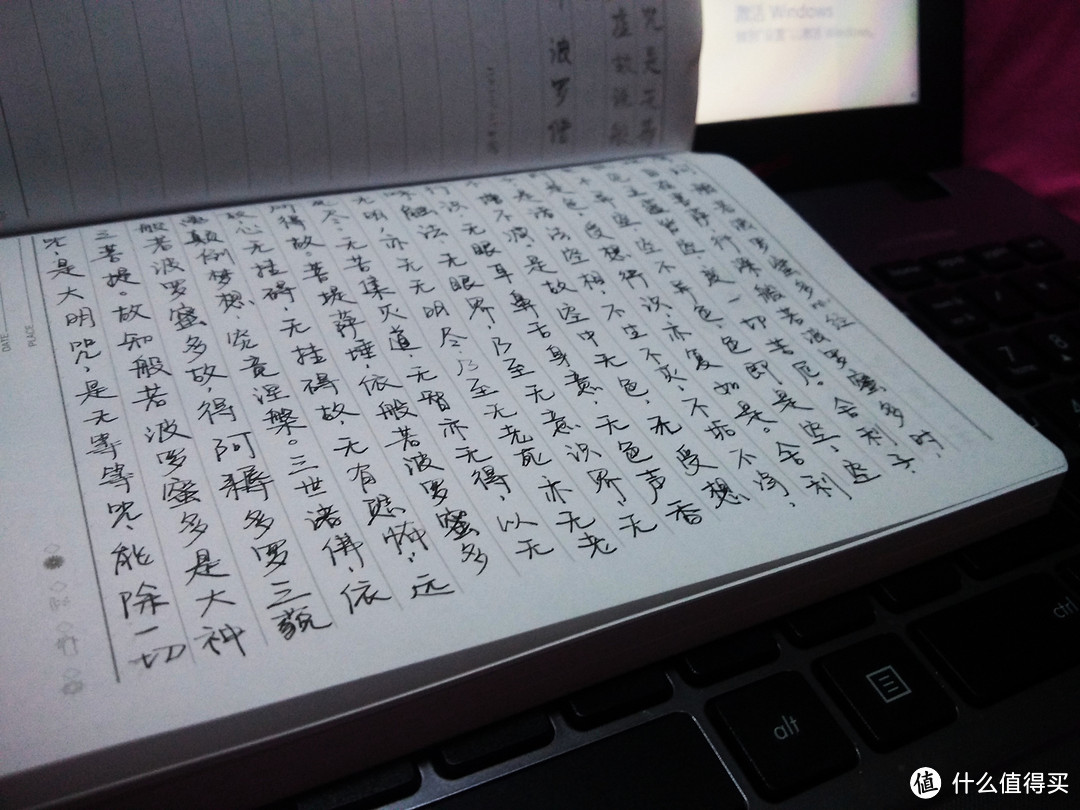 激活 Windows
转到"设置"以激活 Windows。
咒是无等
虚故说般
波罗僧
般若波罗蜜多心经
自在菩萨,行深般若波罗蜜多时,
见五蕴皆空,度一切苦厄。舍利子,
色不异空,空不异色,色即是空,空
色,受想行识,亦复如是。舍利
是诸法空相,不生不灭,不垢不净,
增不减。是故空中无色,无受想
行识,无眼耳鼻舌身意,无色声香
味触法,无眼界,乃至无意识界,无
无明,亦无无明尽,乃至无老死亦无老
死尽。无苦集灭道,无智亦无得,以无
所得故。菩提萨埵,依般若波罗蜜多
故心无挂碍,无挂碍故,无有恐怖,远
离颠倒梦想,究竟涅槃。三世诸佛,依
般若波罗蜜多故,得阿耨多罗三藐
三菩提。故知般若波罗蜜多是大神
咒,是大明咒,是无等等咒,能除一切
DATE
PLACE
7
8
ctrl
alt
值 什么值得买